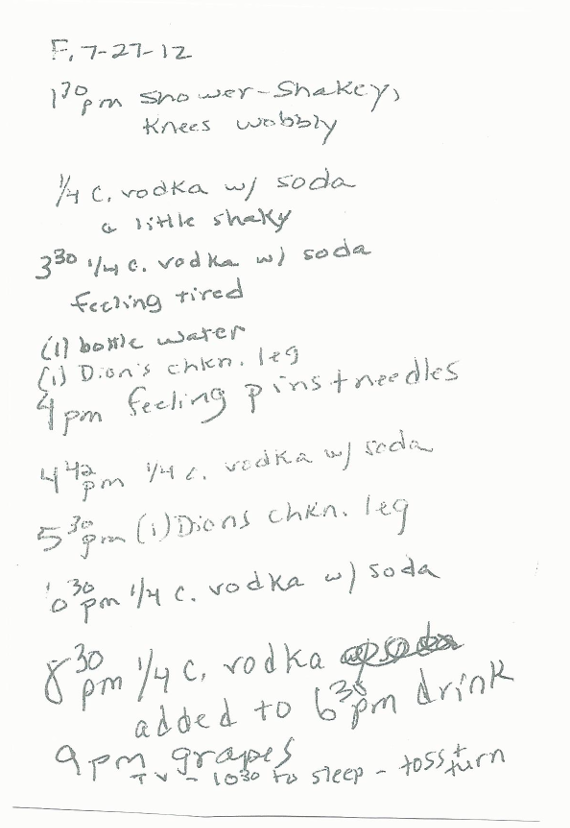 F, 7-27-12
1 30 pm Shower-Shakey,
Knees wobbly
1/4 c. vodka w/ soda
a little shaky
3 30 1/4 c. vodka w/ soda
feeling tired
(1) bottle water
(1) Dion's chkn. leg
4 pm feeling pins + needles
4 42 pm 1/4 c. vodka w/ soda
5 30 pm (1) Dions chkn. leg
6 30 pm 1/4 c. vodka w/ soda
8 30 pm 1/4 c. vodka
added to 6 30 pm drink
9 pm grapes
TV - 10 30 to sleep - toss + turn